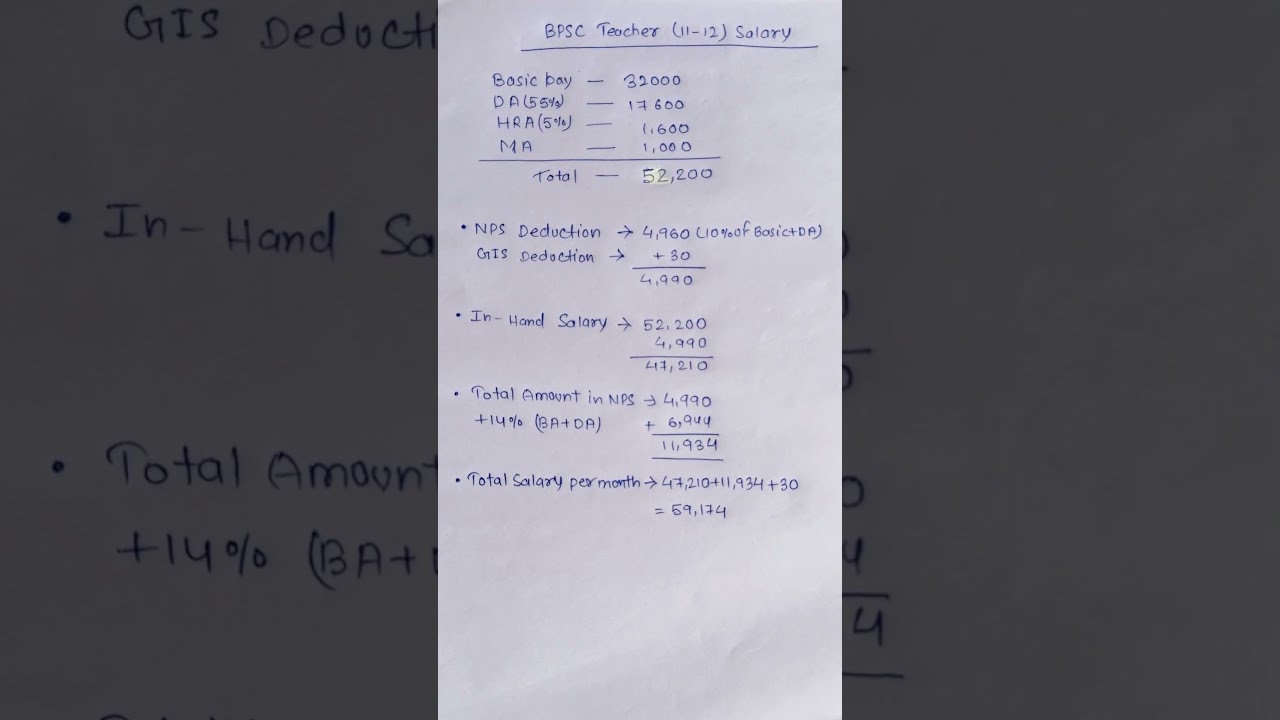 BPSC Teacher (11-12) Salary
Basic pay — 32000
DA(55%) — 17600
HRA(5%) — 1,600
MA — 1,000
Total — 52,200
• NPS Deduction → 4,960 (10% of Basic+DA)
GIS Deduction → + 30
4,990
• In-Hand Salary → 52,200
4,990
47,210
• Total Amount in NPS → 4,990
+14% (BA+DA) + 6,944
11,934
• Total Salary per month → 47,210+11,934+30
= 59,174
GIS Deducti
• In-Hand Sa
• Total Amount
+14% (BA+
0
4
4